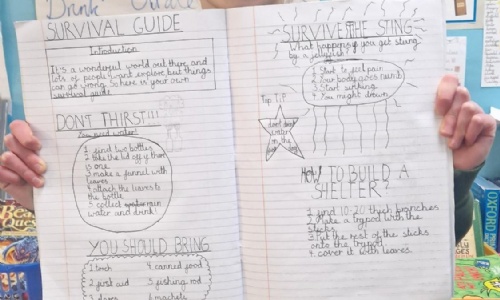 SURVIVAL GUIDE
Introduction
It's a wonderful world out there and
lots of people want explore but things
can go wrong. So here is your own
survival guide
DON'T THIRST!!!
You need water!
1 find two bottles
2 take the lid off if there
is one
3 make a funnel with
leaves
4 attach the leaves to
the bottle
5 collect rain
water and drink!
YOU SHOULD BRING
1 torch
2 first aid
3
4 canned food
5 fishing rod
6 machete
SURVIVE THE STING
What happens if you get stung
by a jellyfish?
1 Start to feel pain
2 Your body goes numb
3 Start sinking
4 You might drown
Top TIP
don't
in the
HOW TO BUILD A
SHELTER?
1 find 10-20 thick branches
2 Make a trypod with the
sticks
3 Put the rest of the sticks
onto the trypod
4 cover it with leaves
OXFORD